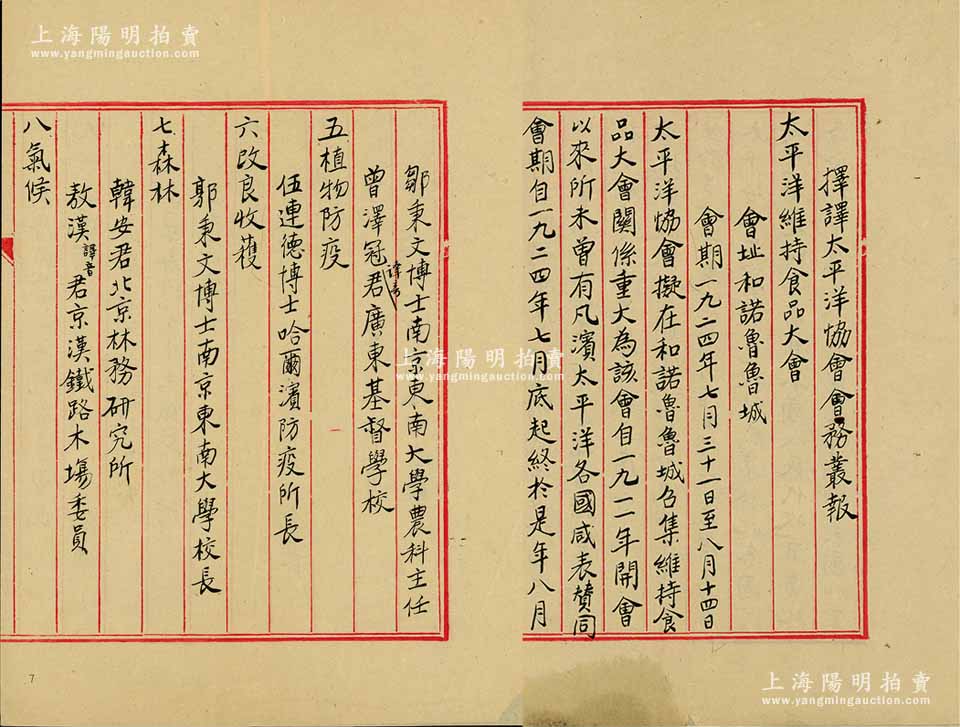 擇譯太平洋協會會務叢報
太平洋維持食品大會
會址和諾魯魯城
會期一九二四年七月三十一日至八月十四日
太平洋協會擬在和諾魯魯城召集維持食
品大會關係重大為該會自一九一一年開會
以來所未曾有凡濱太平洋各國咸表贊同
會期自一九二四年七月底起終於是年八月
鄒秉文博士南京東南大學農科主任
曾澤冠君譯音廣東基督學校
五植物防疫
伍連德博士哈爾濱防疫所長
六改良收穫
郭秉文博士南京東南大學校長
七森林
韓安君北京林務研究所
敖漢譯音君京漢鐵路木場委員
八氣候
7
上海陽明拍賣
www.yangmingauction.com
上海陽明拍賣
www.yangmingauction.com
上海陽明拍賣
www.yangmingauction.com